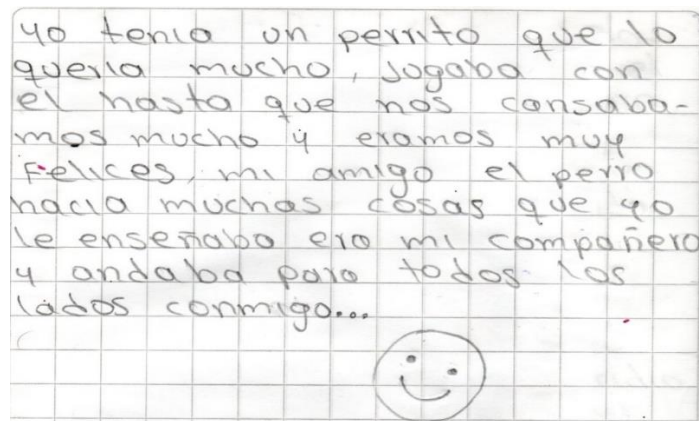 yo tenia un perrito que lo
queria mucho, jugaba con
el hasta que nos cansaba-
mos mucho y eramos muy
Felices, mi amigo el perro
hacia muchas cosas que yo
le enseñaba era mi compañero
y andaba para todos los
lados conmigo...